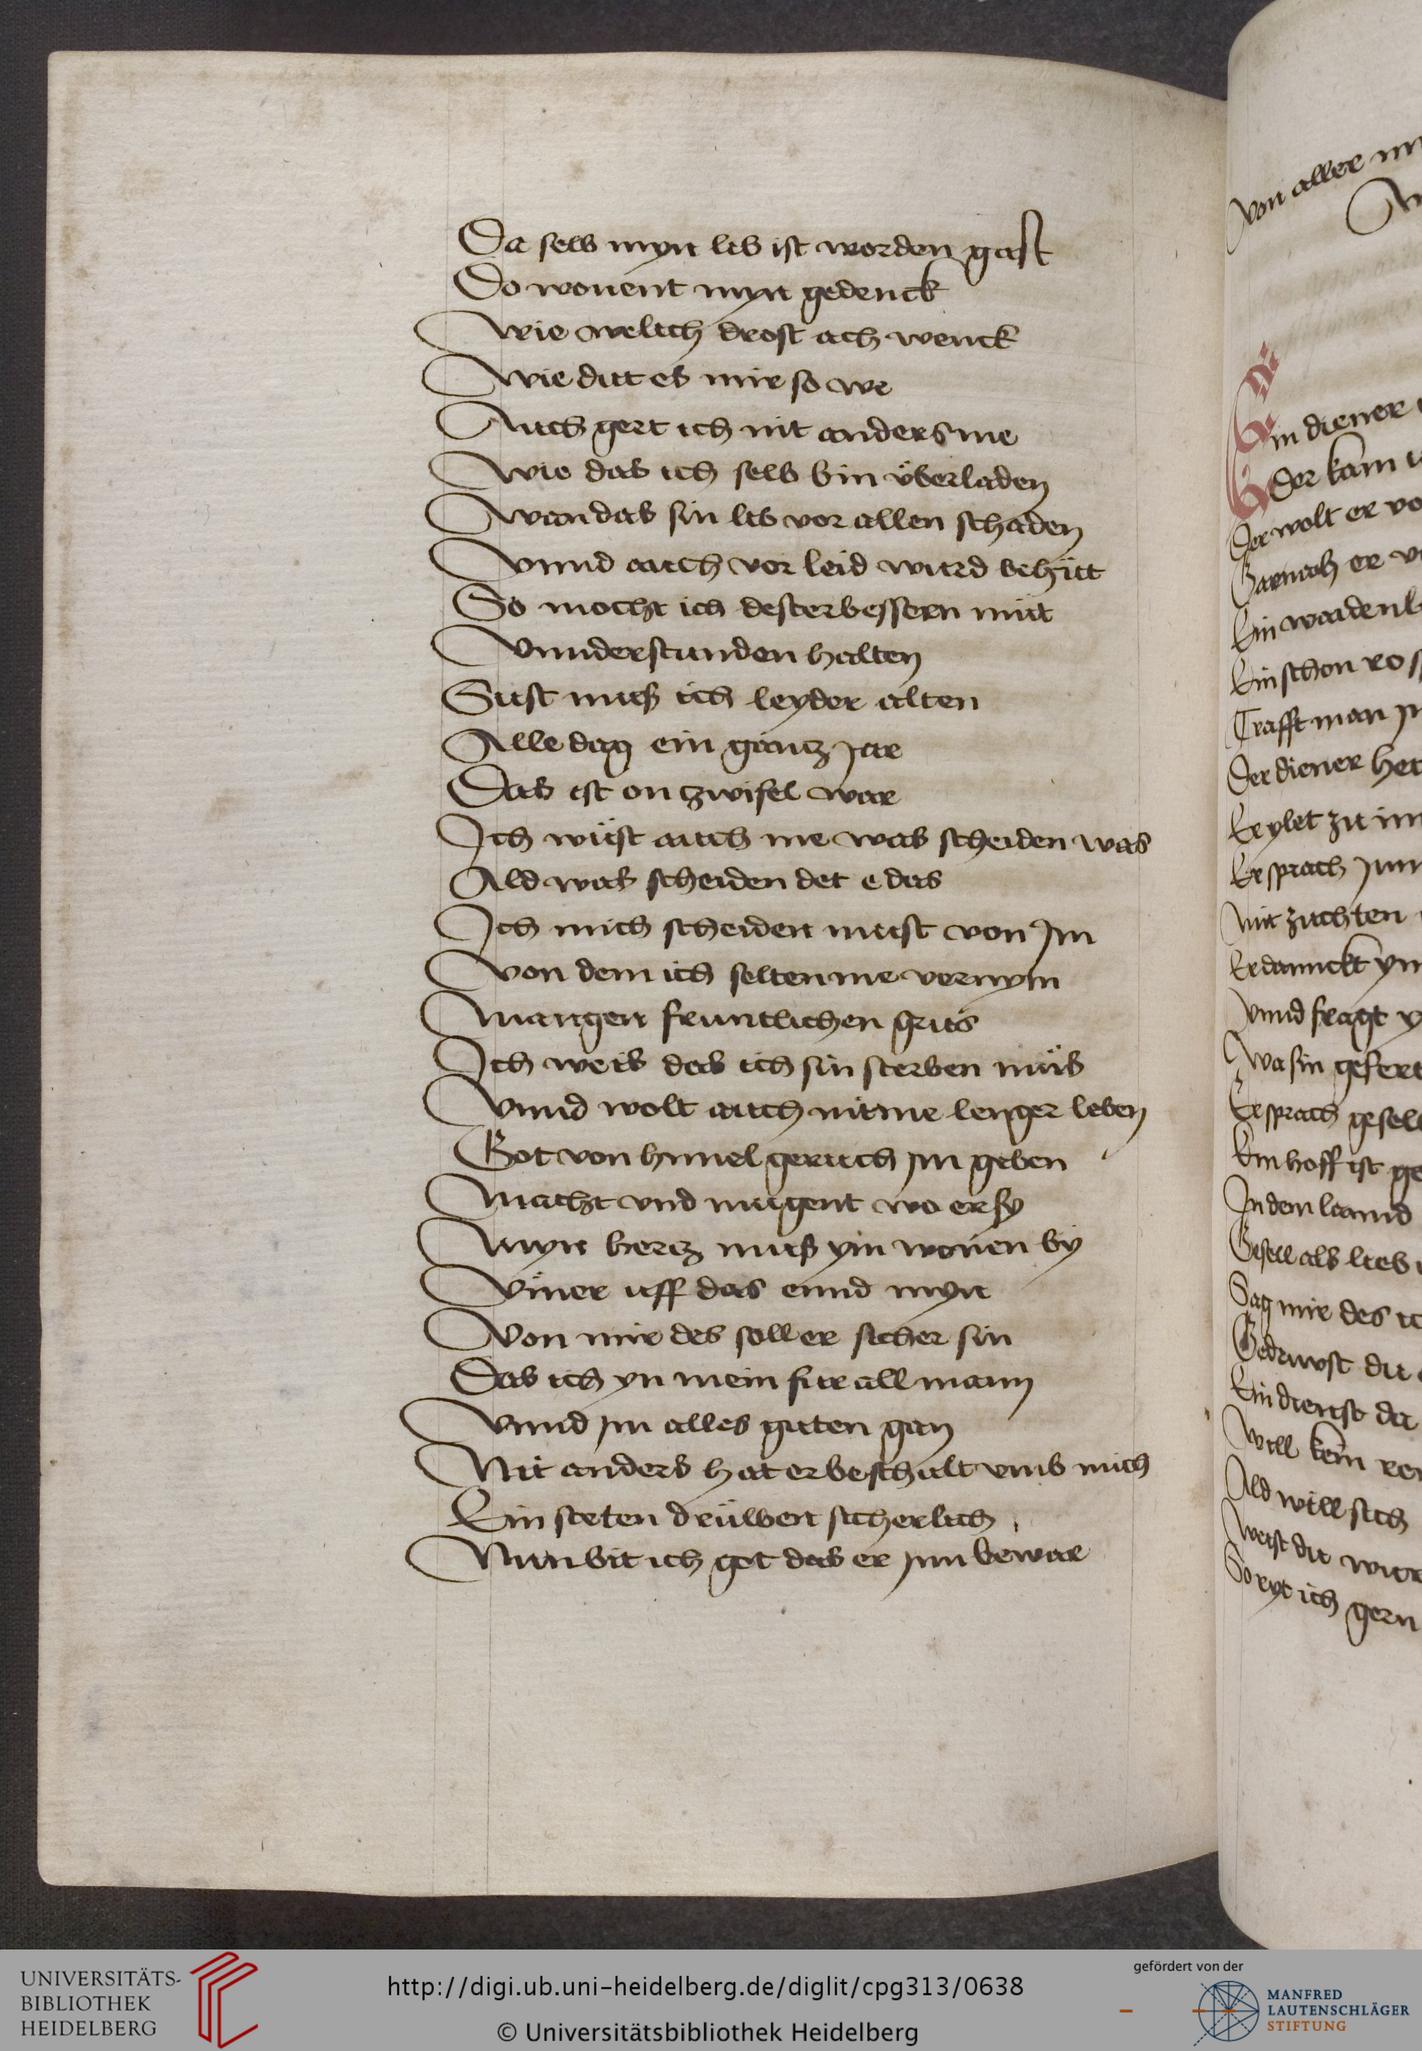 Da selb myn lib ist worden gast
Do wonent myn gedenck
Wie welich drost ach wenck
Wie dut es mir so we
Auch gert ich nit anders me
Wie das ich selb bin überladen
Wan das sin lib vor allen schaden
Vnnd auch vor leid wurd behüt
So mocht ich dester bessern müt
Vnnder stunden halten
Sust muß ich leyder alten
Alle dag ein gantz jar
Das ist on zwifel war
Ich wüst auch nie was scheiden was
Ald was scheiden det e das
Ich mich scheiden must von Im
Von dem ich selten me vernym
Mangen fruntlichen grus
Ich weis das ich sin sterben müs
Vnnd wolt auch nit me lenger leben
Got von himel geruch jm geben
Macht vnd mugent wo er sy
Myn hertz muß ym wonen by
Vmer uff das ennd myn
Von mir des soll er sicher sin
Das ich yn mein fur all mann
Vnnd jm alles guten gan
Nit anders hat er beschult vmb mich
Ein steten drüwen sicherlich
Nun bit ich got das er jnn bewar
Von aller
in diener
Der kam
Der wolt er
Ein schon
Trafft man
Der diener
Er ylet zu im
Er sprach
Mit zuchten
Er dannckt ym
Vnnd fragt
Wa sin gefert
Er sprach
Ein hoff ist
In dem lannd
Gesell als lieb
Sag mir des
Bedruwst du
Ein dienst
Will kein
Ald will sich
Weist du
So ryt ich gern
UNIVERSITÄTS-
BIBLIOTHEK
HEIDELBERG
http://digi.ub.uni-heidelberg.de/diglit/cpg313/0638
© Universitätsbibliothek Heidelberg
gefördert von der
MANFRED
LAUTENSCHLÄGER
STIFTUNG